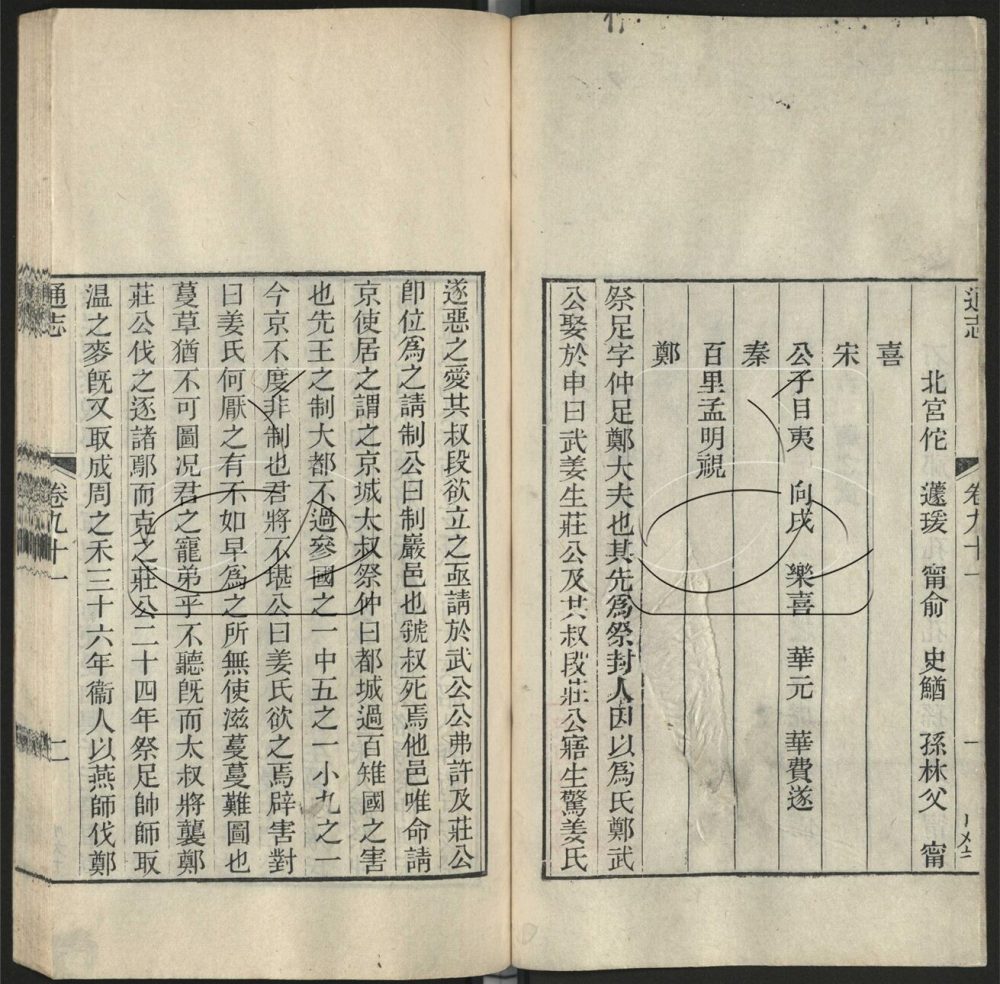 通志
卷九十一
一
北宮佗 蘧瑗 甯俞 史鰌 孫林父 甯
喜
宋
公子目夷 向戌 樂喜 華元 華費遂
秦
百里孟明視
鄭
祭足字仲足鄭大夫也其先為祭封人因以為氏鄭武
公娶於申曰武姜生莊公及其叔段莊公寤生驚姜氏
遂惡之愛其叔段欲立之亟請於武公公弗許及莊公
卽位為之請制公曰制巖邑也虢叔死焉他邑唯命請
京使居之謂之京城太叔祭仲曰都城過百雉國之害
也先王之制大都不過參國之一中五之一小九之一
今京不度非制也君將不堪公曰姜氏欲之焉辟害對
曰姜氏何厭之有不如早為之所無使滋蔓蔓難圖也
蔓草猶不可圖况君之寵弟乎不聽旣而太叔將襲鄭
莊公伐之逐諸鄢而克之莊公二十四年祭足帥師取
温之麥旣又取成周之禾三十六年衞人以燕師伐鄭
通志
卷九十一
二